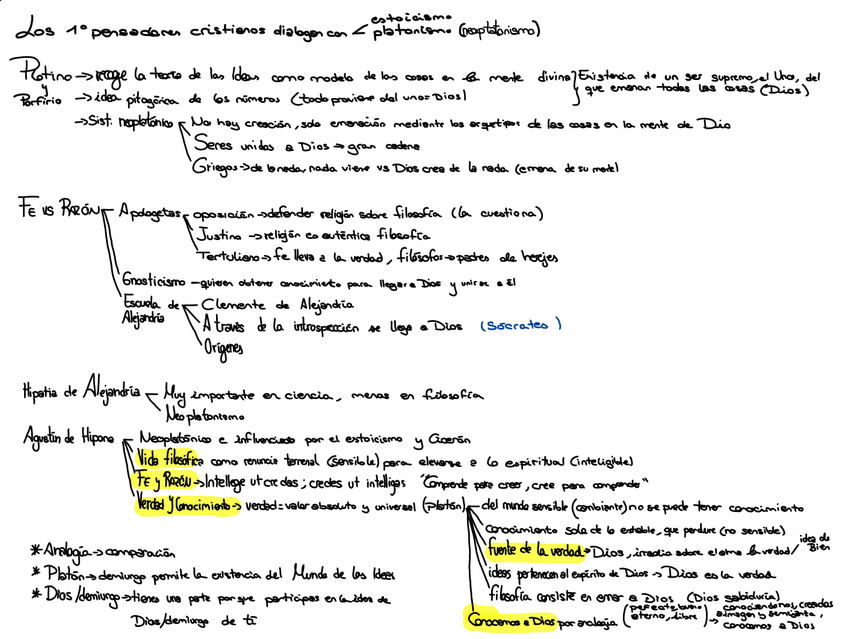 Los 1º pensadores cristianos dialogan con estoicismo
platonismo (neoplatonismo)
Plotino → recoge la teoría de las Ideas como modelo de las cosas en la mente divina } Existencia de un ser supremo, el Uno, del
y
que emanan todas las cosas (Dios)
Porfirio → idea pitagórica de los números (todo proviene del uno = Dios)
→ Sist. neoplatónico No hay creación, solo emanación mediante los arquetipos de las cosas en la mente de Dio
Seres unidos a Dios → gran cadena
Griegos → de la nada, nada viene vs Dios crea de la nada (emana de su mente)
FE vs RAZÓN Apologetas oposición → defender religión sobre filosofía (la cuestiona)
Justino → religión es auténtica filosofía
Tertuliano → fe lleva a la verdad, filósofos → padres de herejes
Gnosticismo - quieren obtener conocimiento para llegar a Dios y unirse a él
Escuela de
Alejandría
Clemente de Alejandría
A través de la introspección se llega a Dios (Sócrates)
Orígenes
Hipatia de Alejandría Muy importante en ciencia, menos en filosofía
Neoplatonismo
Agustín de Hipona Neoplatónico e influenciado por el estoicismo y Cicerón
Vida filosófica como renuncia terrenal (sensible) para elevarse a lo espiritual (inteligible)
FE y RAZÓN → Intellege ut credas; credes ut intelligas "Comprende para creer, cree para comprender"
Verdad y Conocimiento → verdad = valor absoluto y universal (Platón) del mundo sensible (cambiante) no se puede tener conocimiento
conocimiento solo de lo estable, que perdure (no sensible)
fuente de la verdad → Dios, irradia sobre el alma la verdad / idea de Bien
ideas pertenecen al espíritu de Dios → Dios es la verdad
filosofía consiste en amar a Dios (Dios sabiduría)
Conocemos a Dios por analogía (perfecto, bueno, eterno, libre) → conociéndonos, creados a imagen y semejanza, conocemos a Dios
* Analogía → comparación
* Platón → demiurgo permite la existencia del Mundo de las Ideas
* Dios/demiurgo → tienes una parte porque participas en la idea de
Dios/demiurgo de ti